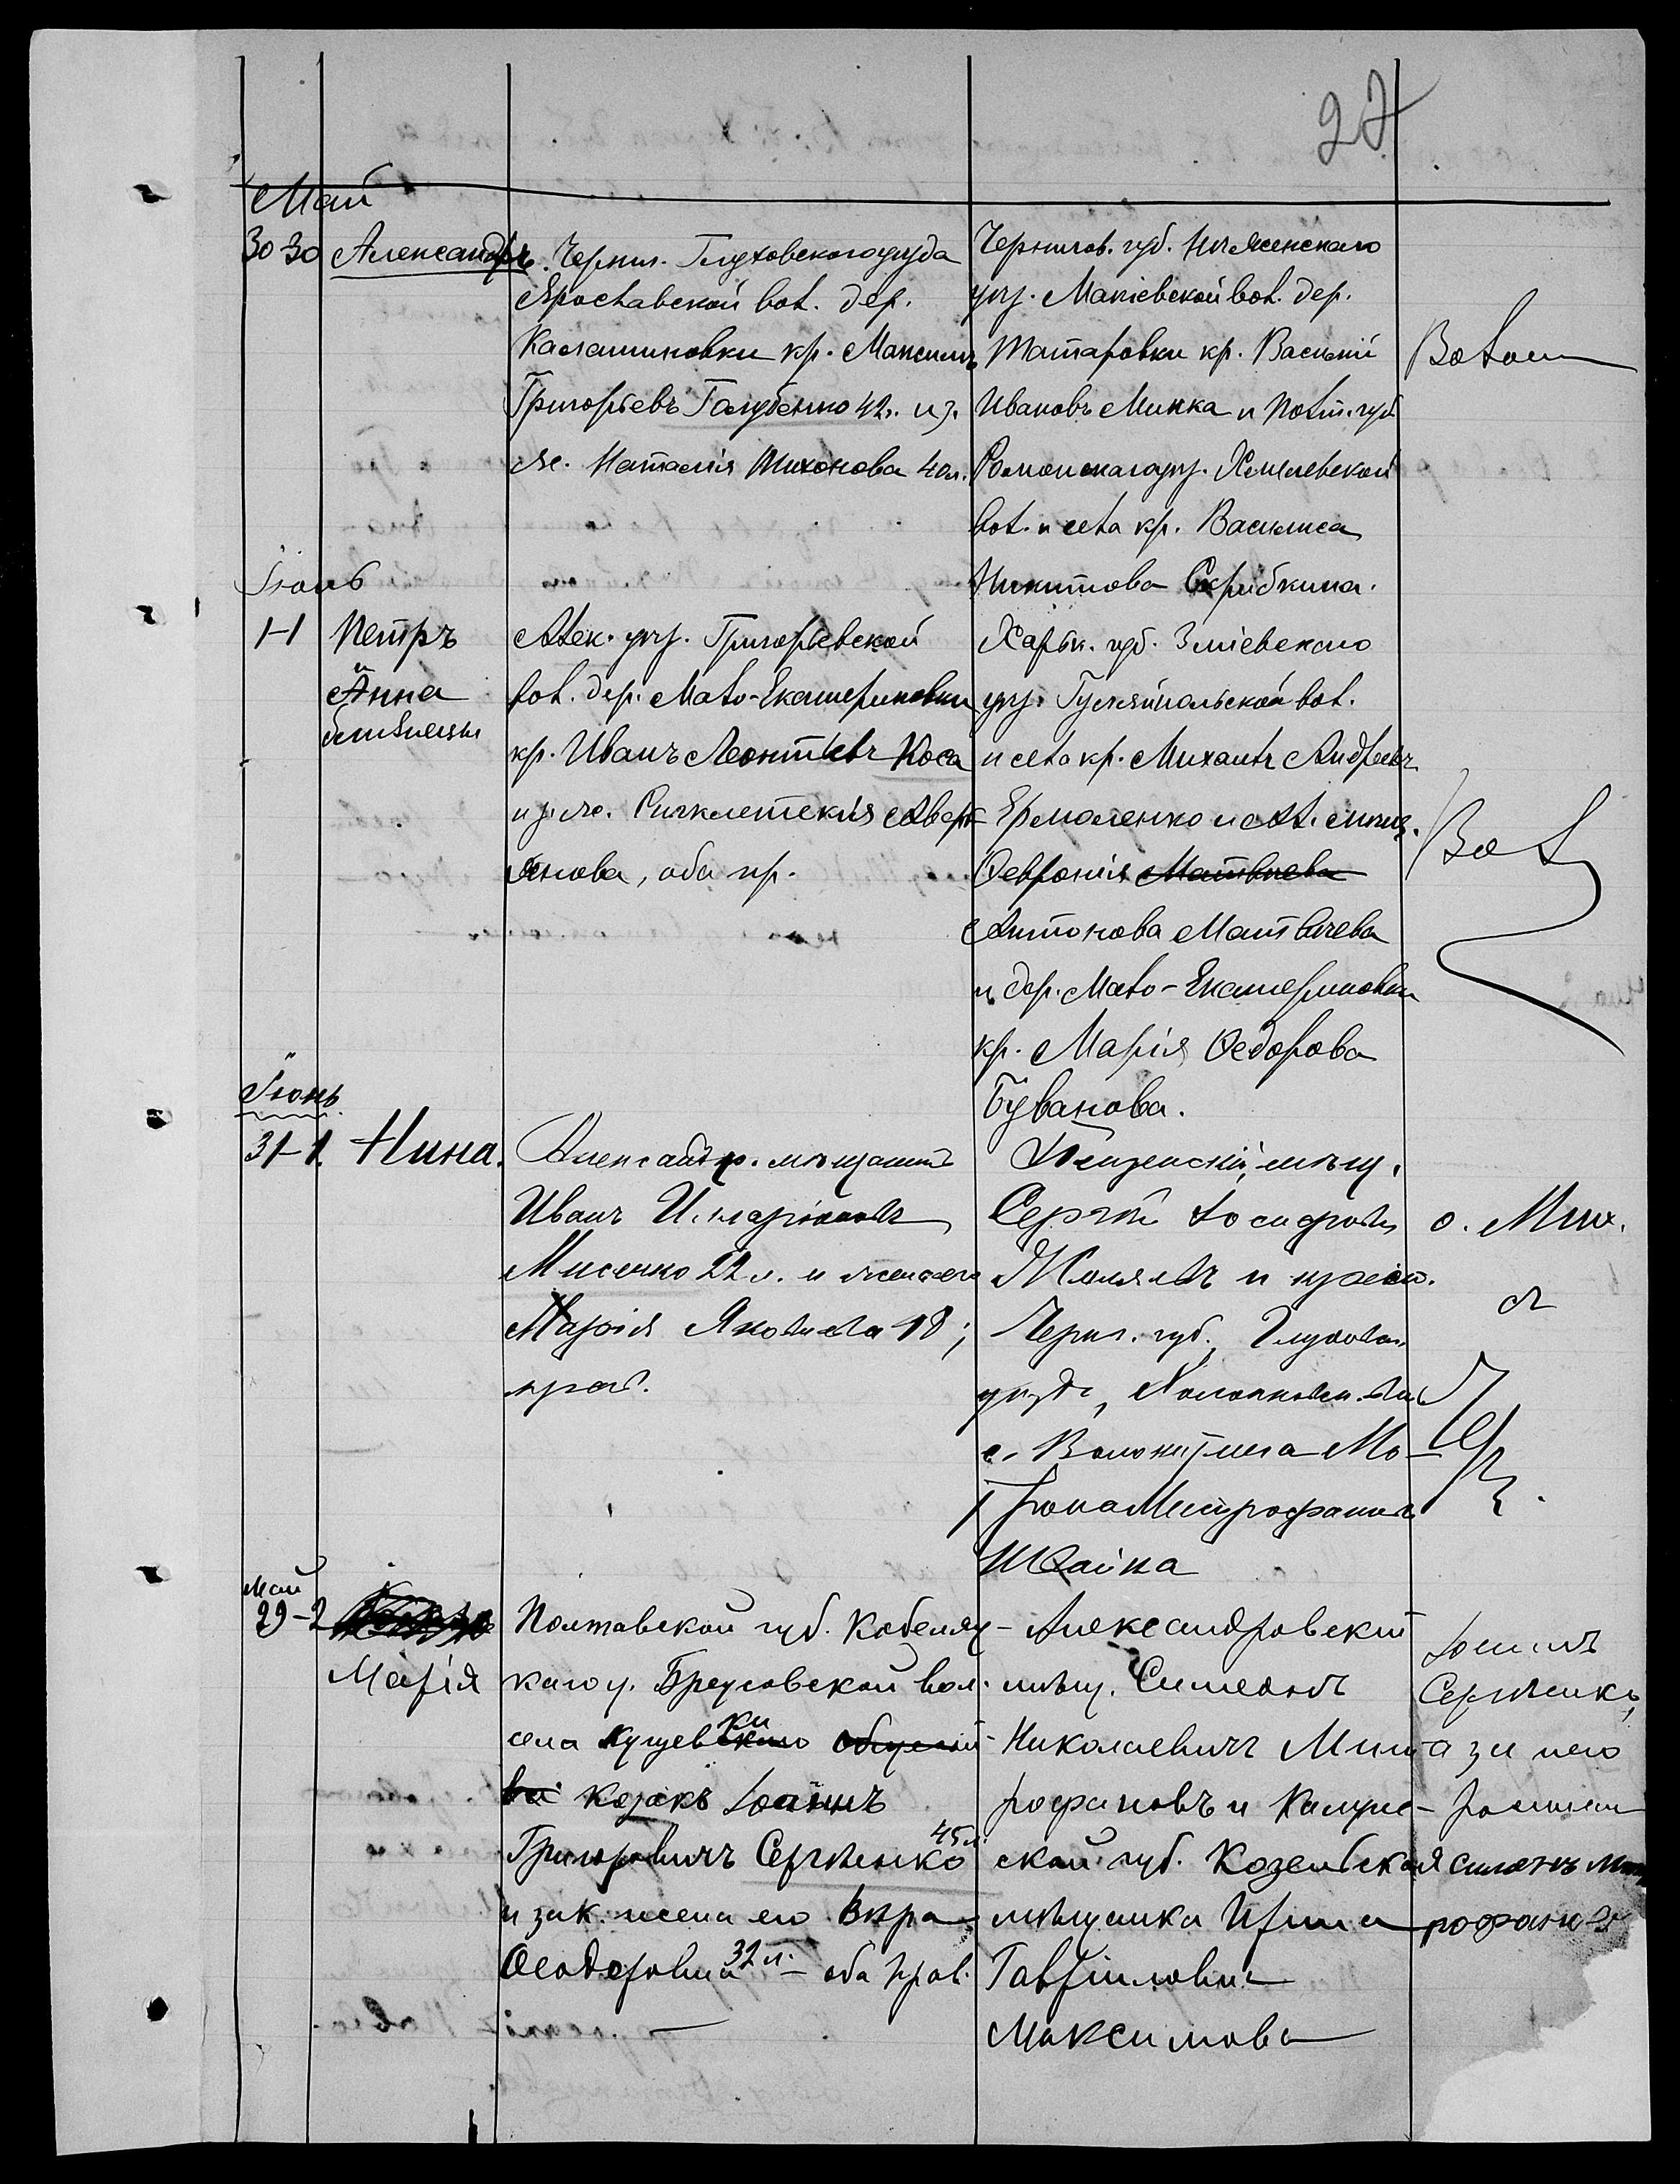 27
Май
30 30 Александръ
Черниг. Глуховскаго уѣзда
Ярославской вол. дер.
Калашиновки кр. Максимъ
Григорьевъ Голубенко 42 л. и з.
ж. Наталія Тихонова 40 л.
Чернигов. губ. Нѣженскаго
уѣз. Макіевской вол. дер.
Татаровки кр. Василій
Ивановъ Минка и Полт. губ.
Роменскаго уѣз. Хмелевской
вол. и села кр. Василиса
Никитова Скрибкина.
Іюнь
1-1
Петръ
и
Анна
близнецы
Алек. уѣз. Григорьевской
вол. дер. Мало-Екатериновки
кр. Иванъ Леонтіевъ Коса
и з. ж. Синклетикія Аверк-
янова, оба пр.
Харьк. губ. Зміевскаго
уѣз. Гуляйпольской вол.
и села кр. Михаилъ Андреевъ
Ермоленко и Ал. мѣщ.
Февронія Матвѣева
Антонова Матвѣева
и дер. Мало-Екатериновки
кр. Марія Федорова
Буванова.
Іюнь
31-1. Нина.
Александр. мѣщанинъ
Иванъ Иларіоновъ
Мисечко 22 л. и жена его
Марія Яковлева 18;
прав.
мѣщ.
Сергѣй Іосифовъ
и крест.
Черн. губ. Глуховск.
уѣзда,
с. Волокитина Мо-
трона Митрофанова
Швайка
о. Мих.
Май
29-2
Марія
Полтавской губ. Кобеляк-
каго у. Бреусовской вол.
села Кущевки
козакъ Іоаннъ
Григоровичъ Сергѣенко 45 л.
и зак. жена его Вѣра
Феодоровна 32 л. - оба прав.
Александровскій
мѣщ. Симеонъ
Николаевичъ Мит-
рофановъ и Калуж-
ской губ. Козельская
мѣщанка Ирина
Гавріиловна
Максимова
Іоаннъ
Сергѣенко,
а за него
Симеонъ Мит
рофановъ